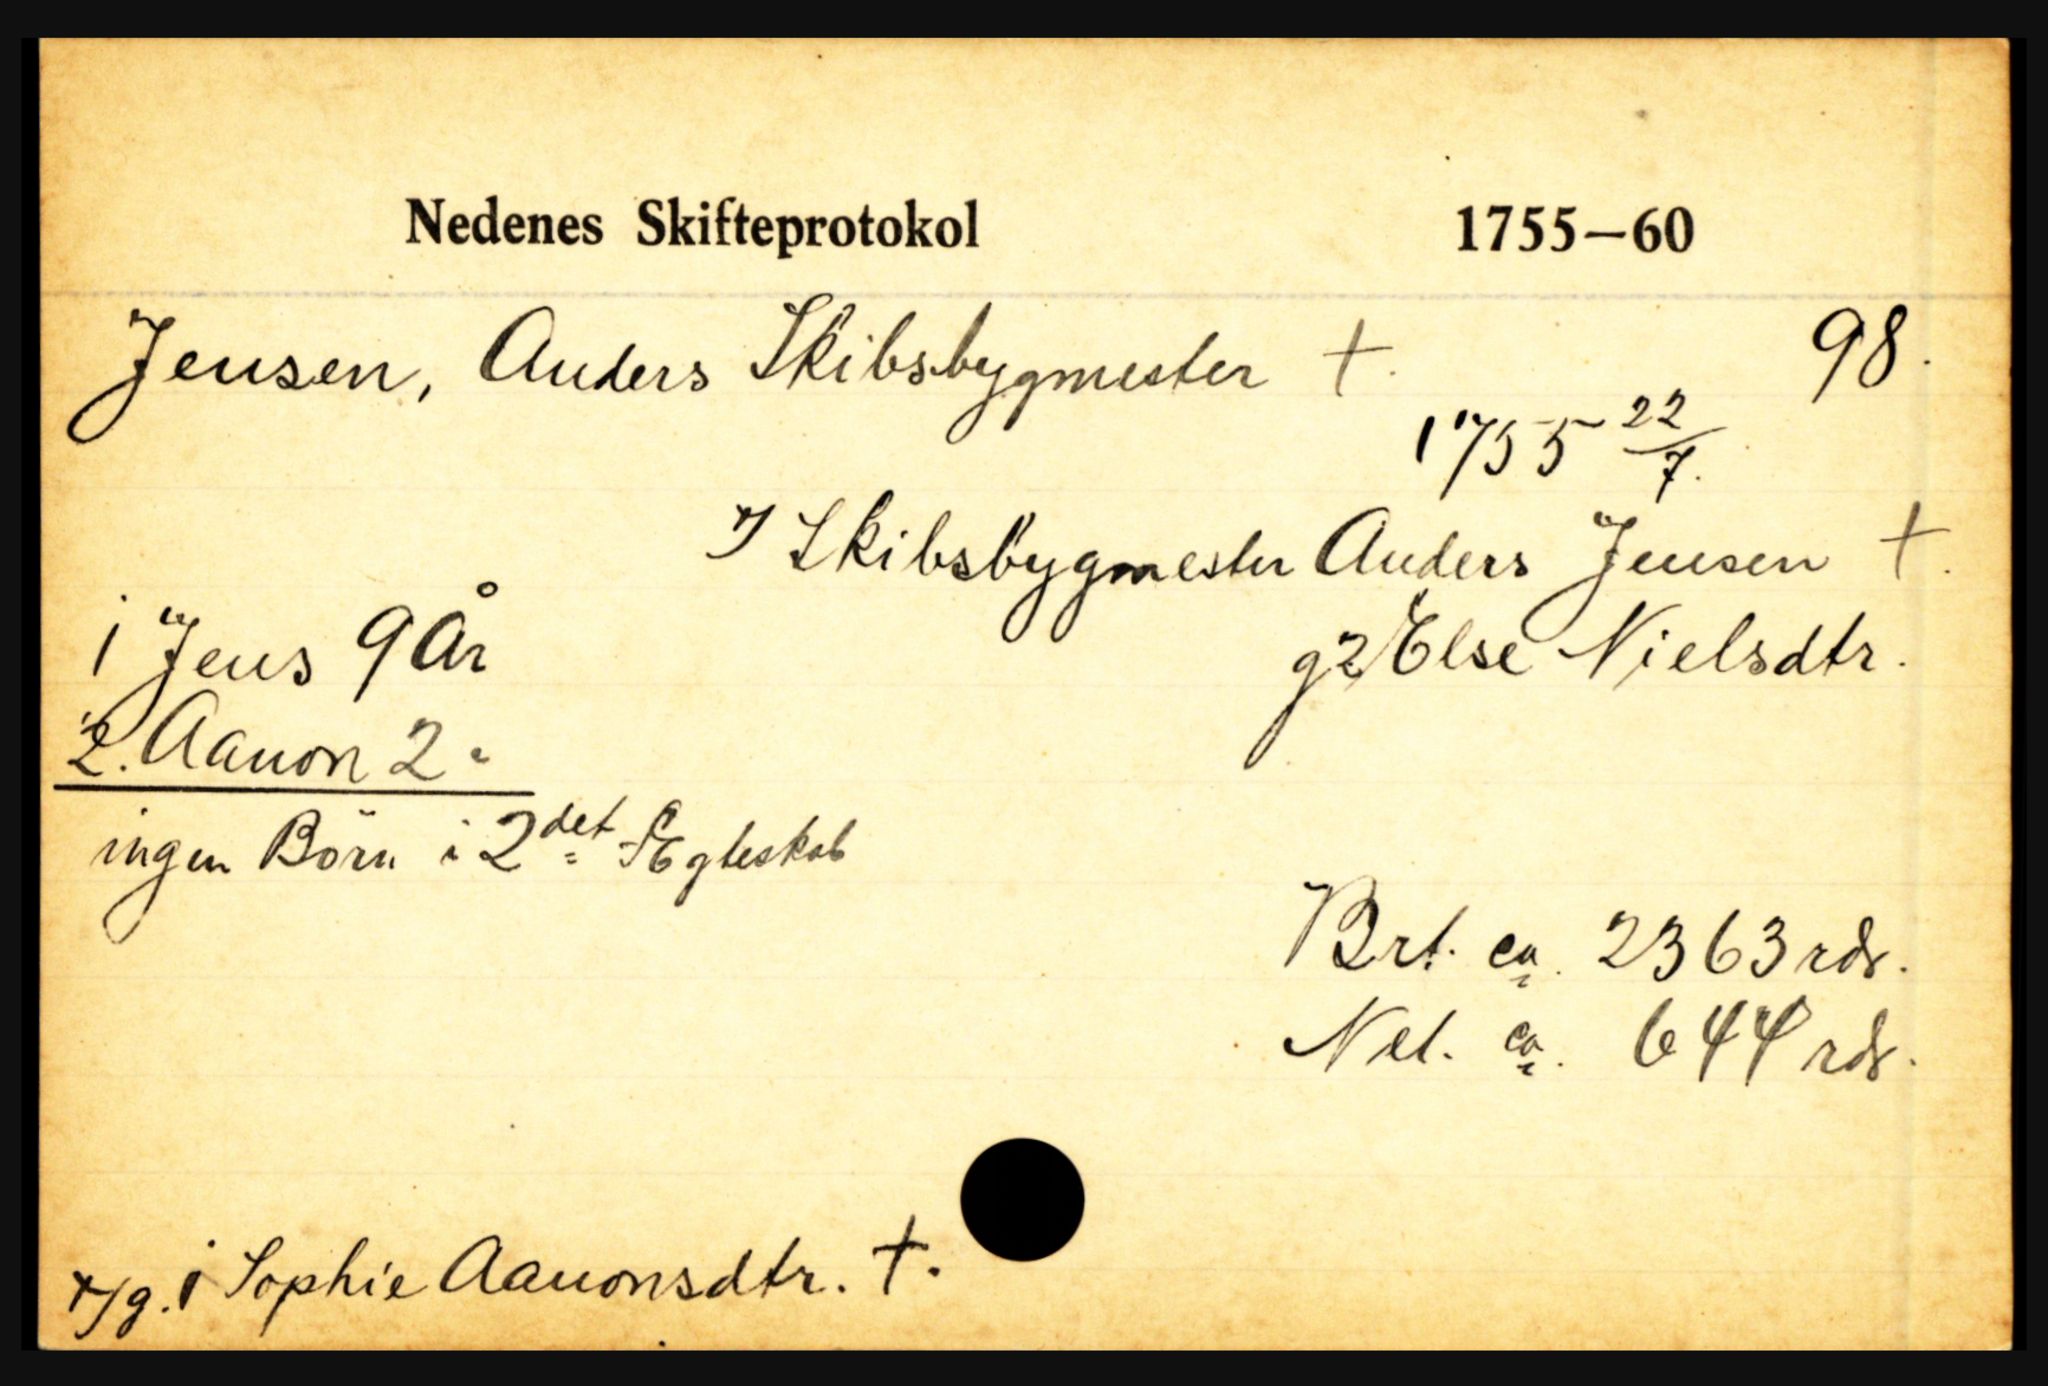 Nedenes Skifteprotokol 1755—60
Jensen, Anders Skibsbygmester †. 98.
1755 22/7.
*/ Skibsbygmester Anders Jensen †.
g2/ Else Nielsdtr.
1 Jens 9 År
2. Aanon 2 "
ingen Börn i 2det Ægteskab
Brt. ca. 2363 rdr.
Net. ca. 644 rdr.
*/g. 1 Sophie Aanonsdtr. †.